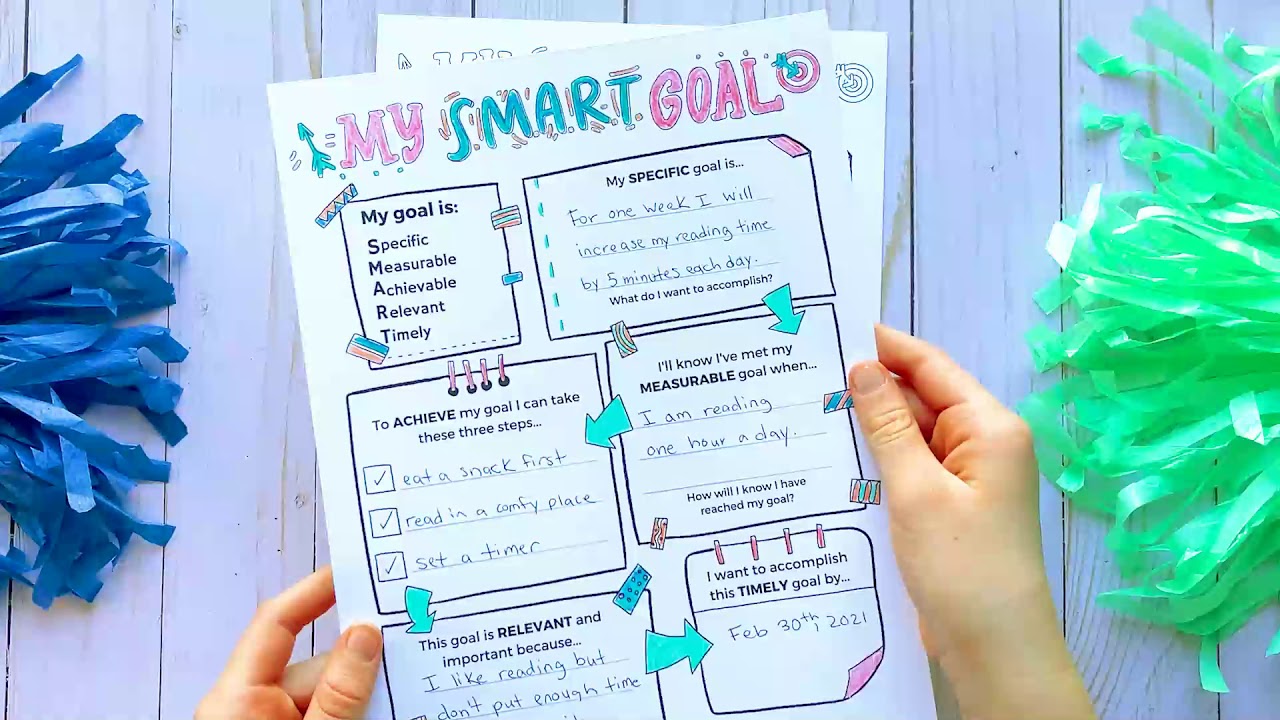 MY SMART GOAL
My goal is:
Specific
Measurable
Achievable
Relevant
Timely
My SPECIFIC goal is...
For one week I will
increase my reading time
by 5 minutes each day.
What do I want to accomplish?
I'll know I've met my
MEASURABLE goal when...
I am reading
one hour a day.
How will I know I have
reached my goal?
To ACHIEVE my goal I can take
these three steps...
eat a snack first
read in a comfy place
set a timer
This goal is RELEVANT and
important because...
I like reading but
don't put enough time
I want to accomplish
this TIMELY goal by...
Feb 30th, 2021